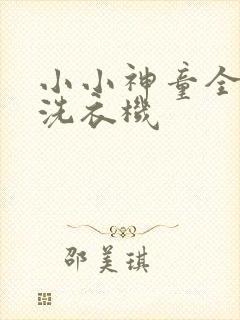 小小神童全
洗衣機
邵美琪